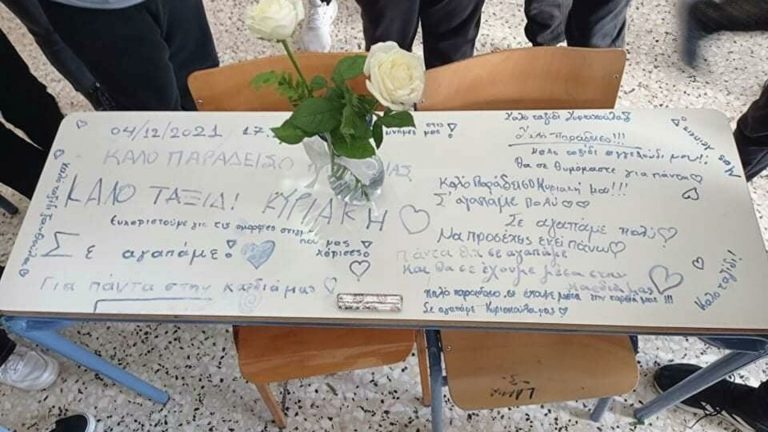 04/12/2021 17
ΚΑΛΟ ΠΑΡΑΔΕΙΣΟ
ΚΑΛΟ ΤΑΞΙΔΙ! ΚΥΡΙΑΚΗ ♡
Ευχαριστούμε για τις όμορφες στιγμές
που μας
χάρισες!
Σε αγαπάμε!
Για πάντα στην καρδιά μας ♡
στις
μνήμες μας!
Καλο ταξίδι
Καλο Παράδεισο!!!
Καλο ταξίδι αγγελούδι μου!!
Θα σε θυμόμαστε για πάντα♡
Καλο Παράδεισο Κυριακή μου!!!
Σ' αγαπάμε Πολύ♡♡
Σε αγαπάμε πολύ♡
Να προσέχεις εκεί πάνω♡
Πάντα θα σε αγαπάμε
Και θα σε έχουμε μέσα στην
καρδιά μας
Καλο παράδεισο, σε έχουμε μέσα την καρδιά μας!!!
Σε αγαπάμε Κυριακούλα μας♡
Καλο ταξίδι!
Μας λείπεις!